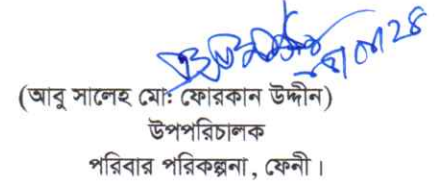 (আবু সালেহ মো: ফোরকান উদ্দীন)
উপপরিচালক
পরিবার পরিকল্পনা, ফেনী।